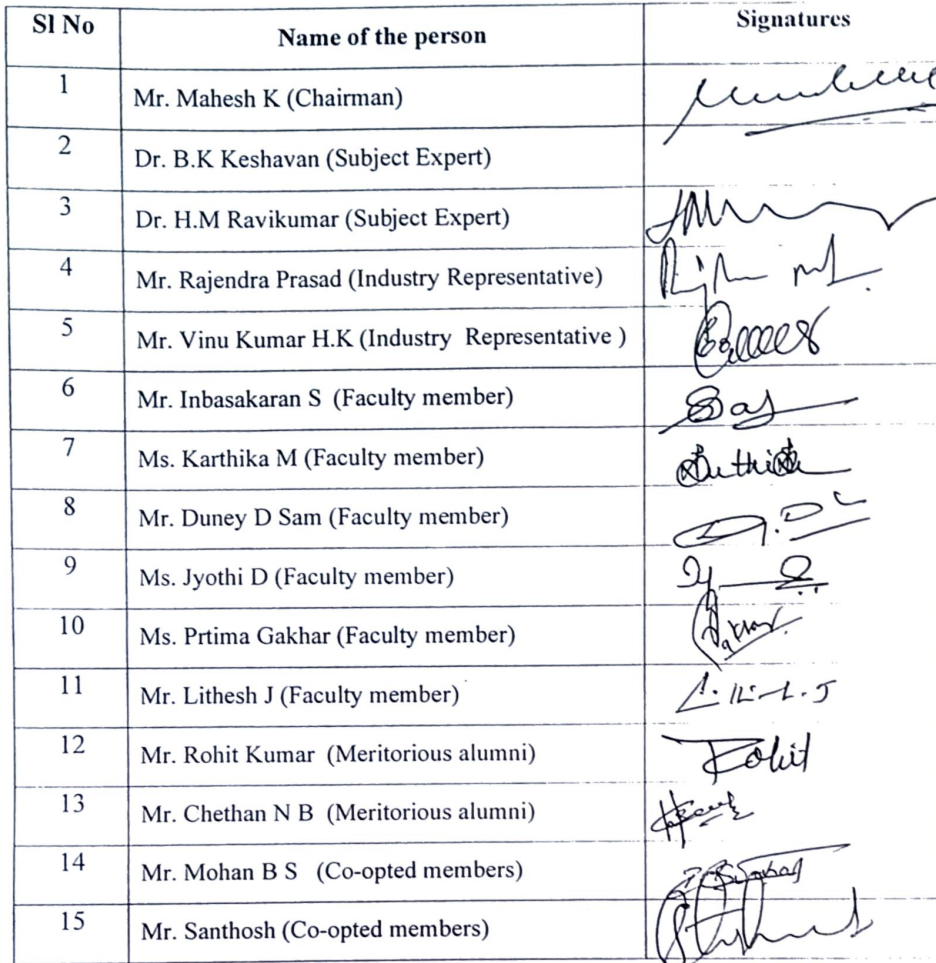 Sl No Name of the person Signatures
1 Mr. Mahesh K (Chairman)
2 Dr. B.K Keshavan (Subject Expert)
3 Dr. H.M Ravikumar (Subject Expert)
4 Mr. Rajendra Prasad (Industry Representative)
5 Mr. Vinu Kumar H.K (Industry Representative )
6 Mr. Inbasakaran S (Faculty member)
7 Ms. Karthika M (Faculty member)
8 Mr. Duney D Sam (Faculty member)
9 Ms. Jyothi D (Faculty member)
10 Ms. Prtima Gakhar (Faculty member)
11 Mr. Lithesh J (Faculty member)
12 Mr. Rohit Kumar (Meritorious alumni) Rohit
13 Mr. Chethan N B (Meritorious alumni)
14 Mr. Mohan B S (Co-opted members)
15 Mr. Santhosh (Co-opted members)